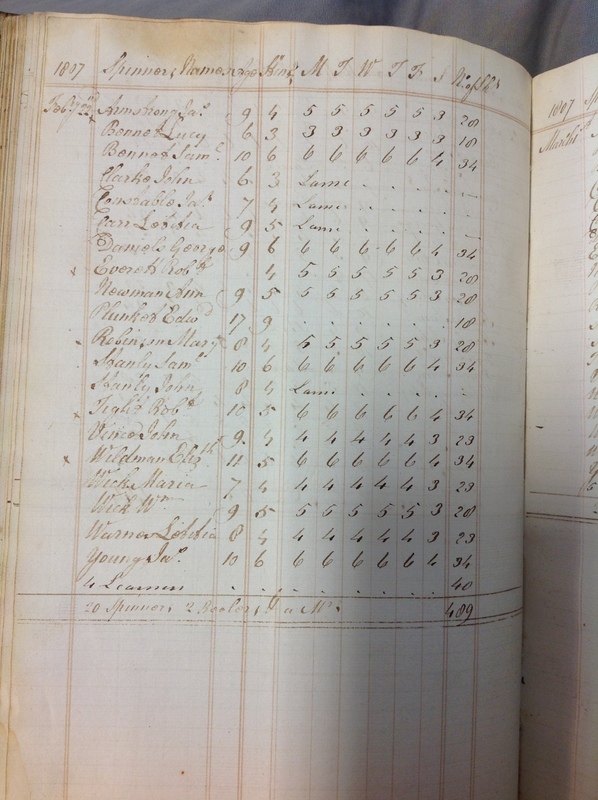 1807 Spinners Names Age Stint M T W T F S No. of Sks
Feby 22d Armstrong Jas. 9 4 5 5 5 5 5 3 28
Bennet Lucy 6 3 3 3 3 3 3 3 18
Bennet Saml. 10 6 6 6 6 6 6 4 34
Clarke John 6 3 Lame . . . . . -
Constable Jas. 7 4 Lame . . . . -
Carr Lætitia 9 5 Lame . . . . -
Daniels George 9 6 6 6 6 6 6 4 34
x Everett Robt. 4 5 5 5 5 5 3 28
Newman Ann 9 5 5 5 5 5 5 3 28
Plunket Edwd 17 9 . . . . . . 18
Robinson Mary 8 4 5 5 5 5 5 3 28
Stanly Saml. 10 6 6 6 6 6 6 4 34
Stanly John 8 4 Lame . . . . .
x Tight Robt. 10 5 6 6 6 6 6 4 34
Vince John 9 4 4 4 4 4 4 3 23
x Wildman Elizth 11 5 6 6 6 6 6 4 34
Wick Maria 7 4 4 4 4 4 4 3 23
Wick Wm 9 5 5 5 5 5 5 3 28
Warner Lætitia 8 4 4 4 4 4 4 3 23
Young Jas. 10 6 6 6 6 6 6 4 34
4 Learners . . . . . . . . 40
20 Spinners 2 Reelers & a Mrs. 489
1807 Sp
March 1